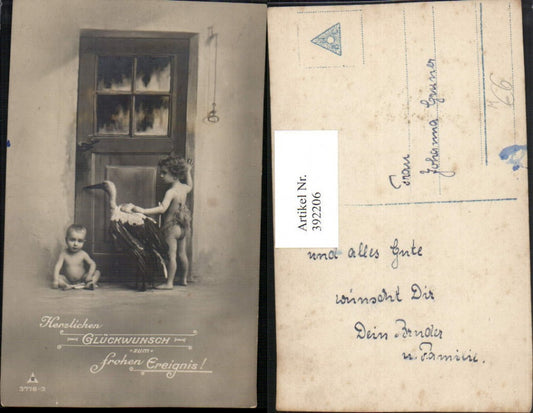 Herzlichen
GLÜCKWUNSCH
zum
frohen Ereignis!
3776-3
Artikel Nr.
392206
Frau
Johanna Gruner
und alles Gute
wünscht Dir
Dein Bruder
u. Familie.